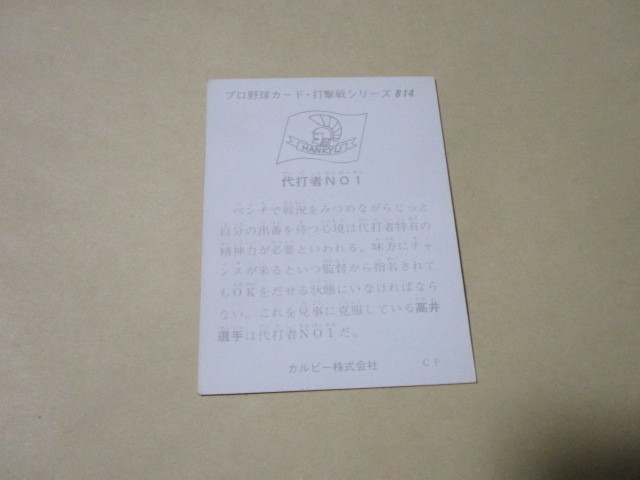 プロ野球カード・打撃戦シリーズ 814
HANKYU
代打者NO1
ベンチで戦況をみつめながらじっと
自分の出番を待つ心境は代打者特有の
精神力が必要といわれる。味方にチャ
ンスが来るといつ監督から指名されて
もOKをだせる状態にいなければなら
ない。これを見事に克服している高井
選手は代打者NO1だ。
カルビー株式会社